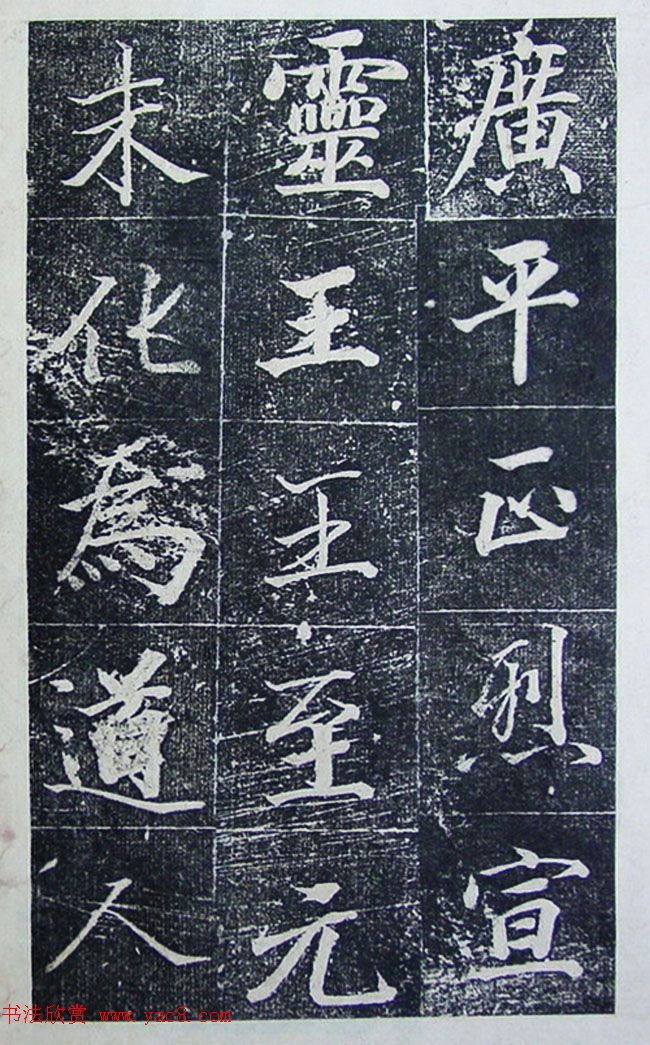 廣平正烈宣
靈王王至元
未化爲道人
书法欣赏 www.yac8.com